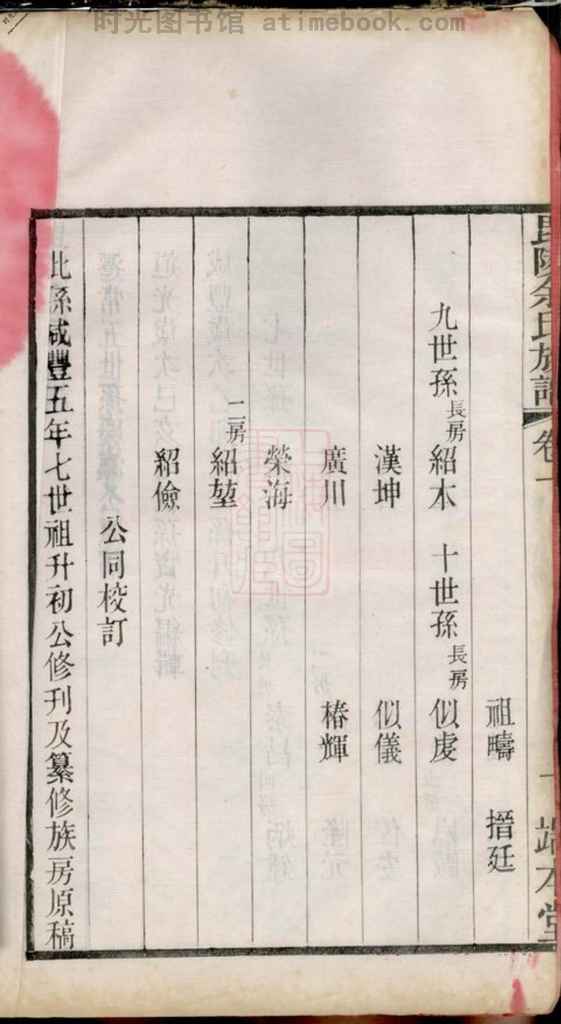 时光图书馆 atimebook.com
毘陵余氏族譜 卷一 一 端本堂
祖疇 搢廷
九世孫 長房 紹本 十世孫 長房 似虔
漢坤 似儀
廣川 椿輝
榮海
二房 紹堃
紹儉
公同校訂
此係咸豐五年七世祖升初公修刋及纂修族房原稿